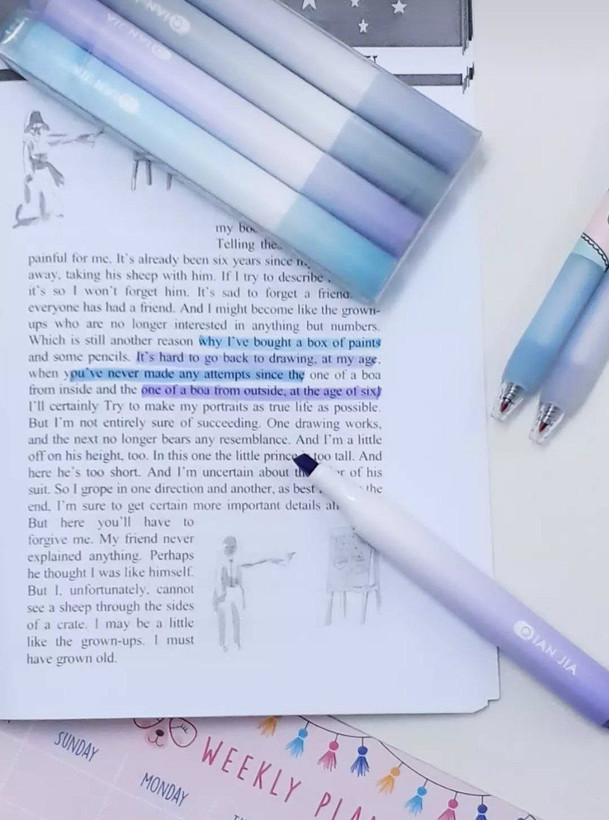 DIAN JIA
DIAN JIA
my
Telling the
painful for me. It's already been six years since
away, taking his sheep with him. If I try to describe
it's so I won't forget him. It's sad to forget a friend
everyone has had a friend. And I might become like the grown-
ups who are no longer interested in anything but numbers.
Which is still another reason why I've bought a box of paints
and some pencils. It's hard to go back to drawing, at my age,
when you've never made any attempts since the one of a boa
from inside and the one of a boa from outside, at the age of six!
I'll certainly Try to make my portraits as true life as possible.
But I'm not entirely sure of succeeding. One drawing works,
and the next no longer bears any resemblance. And I'm a little
off on his height, too. In this one the little prince too tall. And
here he's too short. And I'm uncertain about of his
suit. So I grope in one direction and another, as best the
end, I'm sure to get certain more important details
But here you'll have to
forgive me. My friend never
explained anything. Perhaps
he thought I was like himself.
But I, unfortunately, cannot
see a sheep through the sides
of a crate. I may be a little
like the grown-ups. I must
have grown old.
DIAN JIA
WEEKLY
SUNDAY
MONDAY